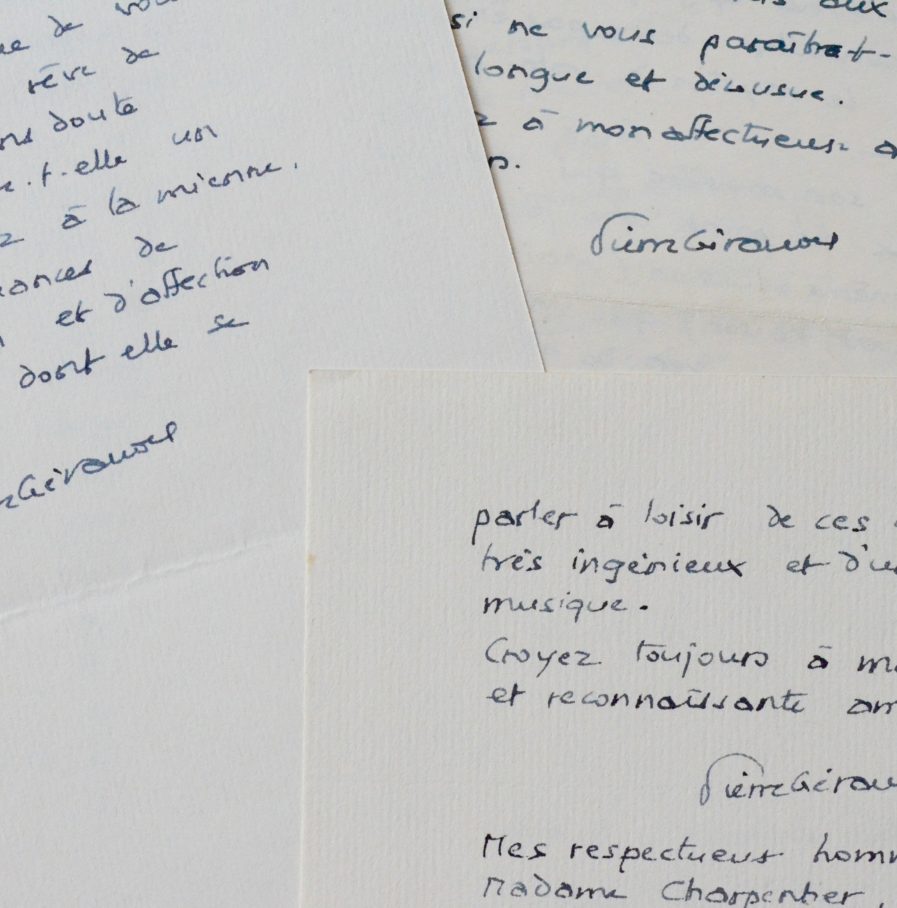 de vous
rêve de
doute
-t-elle un
à la mienne.
de
et d'affection
dont elle se
Girauous
aux
si ne vous paraîtrat-
longue et décousue.
à mon affectueux
Pierre Girauous
parler à loisir de ces
très ingénieux et d'u
musique.
Croyez toujours à m
et reconnaissante am
Pierre Girau
Mes respectueux homm
Madame Charpentier.